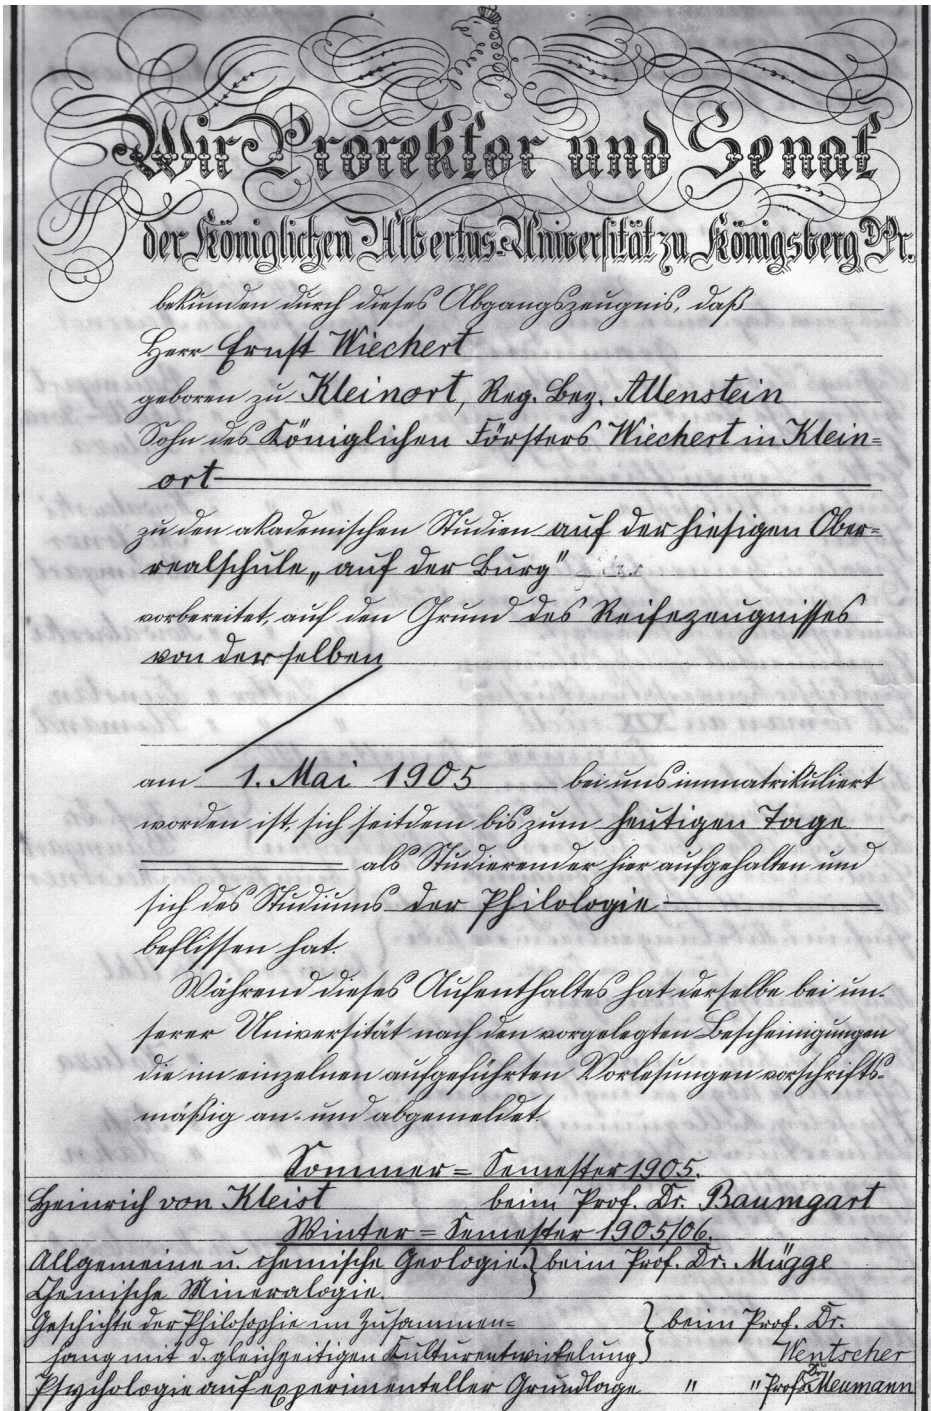 Wir Prorektor und Senat
der Königlichen Albertus-Universität zu Königsberg Pr.
bekunden durch dieses Abgangszeugnis, daß
Herr Ernst Wiechert
geboren zu Kleinort, Reg. Bez. Allenstein
Sohn des Königlichen Försters Wiechert in Klein=
ort
zu den akademischen Studien auf der hiesigen Ober=
realschule „auf der Burg"
vorbereitet, auf den Grund des Reifezeugnisses
von derselben
am 1. Mai 1905 bei uns immatrikuliert
worden ist, sich seitdem bis zum heutigen Tage
als Studierender hier aufgehalten und
sich des Studiums der Philologie
beflissen hat.
Während dieses Aufenthaltes hat derselbe bei un-
serer Universität nach den vorgelegten Bescheinigungen
die im einzelnen aufgeführten Vorlesungen vorschrifts-
mäßig an- und abgemeldet.
Sommer=Semester 1905.
Heinrich von Kleist beim Prof. Dr. Baumgart
Winter=Semester 1905/06.
Allgemeine u. chemische Geologie. } beim Prof. Dr. Mügge
Chemische Mineralogie.
Geschichte der Philosophie im Zusammen= } beim Prof. Dr.
hang mit d. gleichzeitigen Kulturentwickelung Wentscher
Psychologie auf experimenteller Grundlage " " Prof. Dr. Meumann